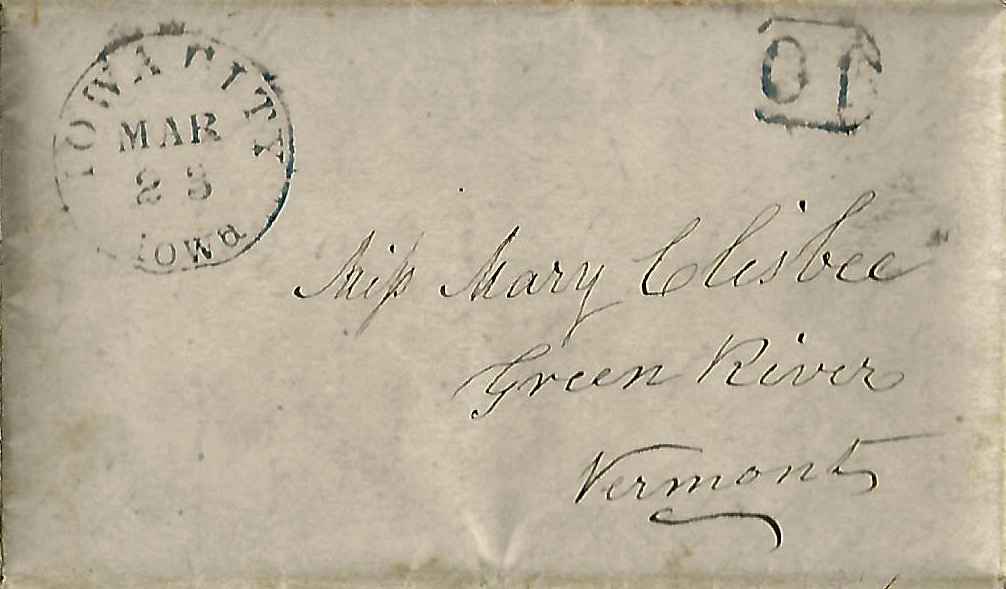 IOWA CITY
MAR
23
Iowa
10
Miſs Mary Clisbee
Green River
Vermont